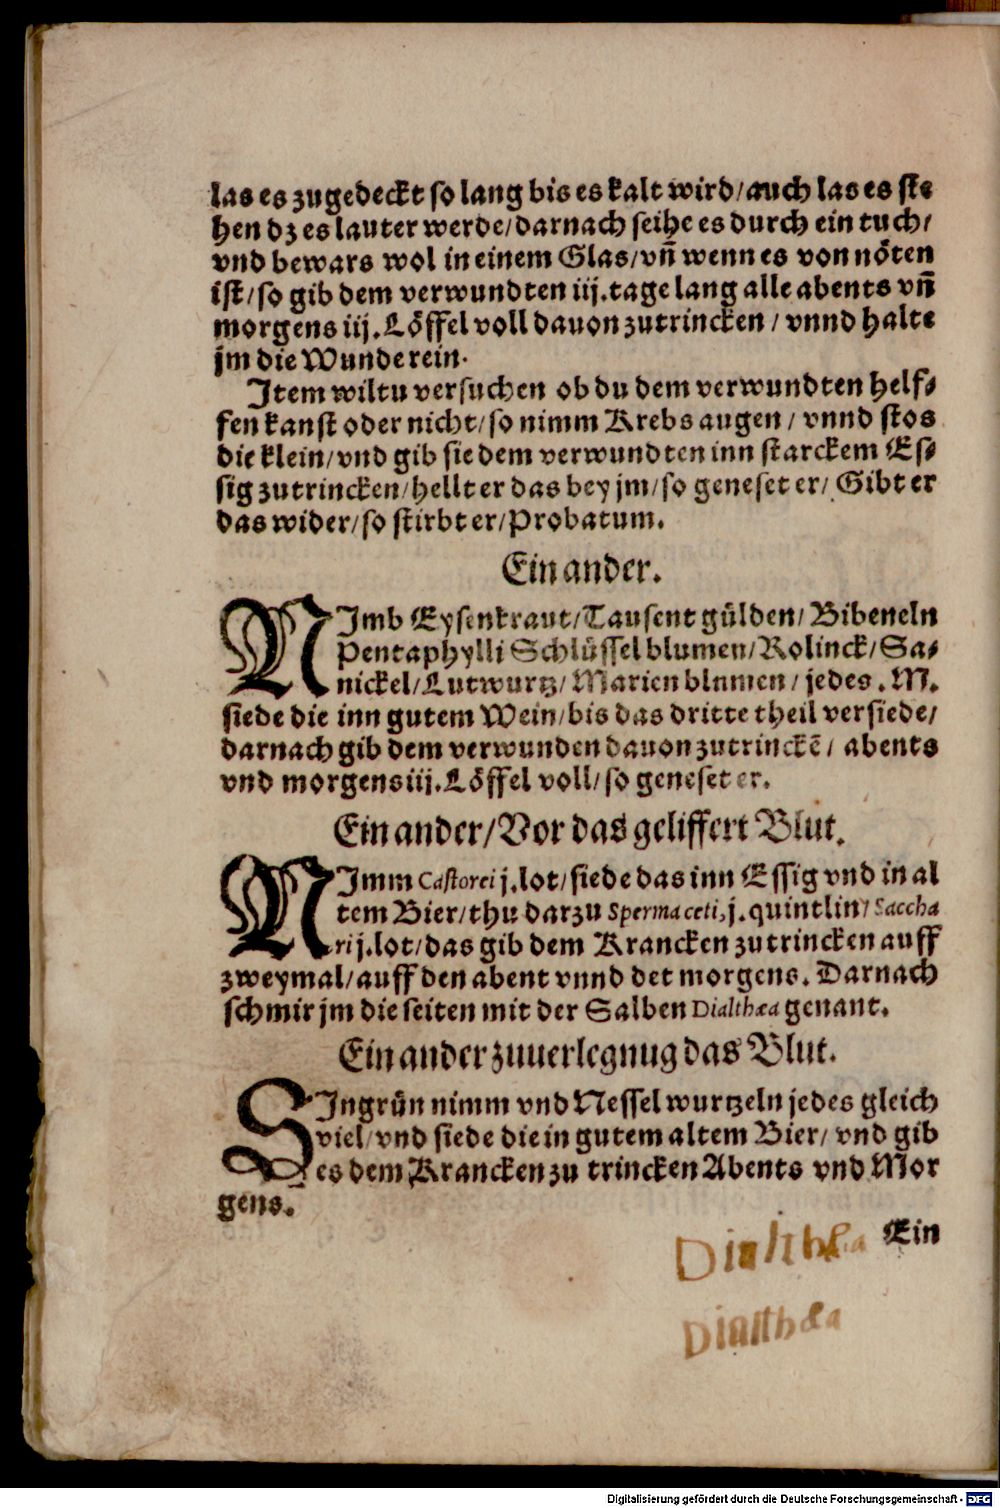 las es zugedeckt so lang bis es kalt wird/auch las es ste
hen dz es lauter werde/darnach seihe es durch ein tuch/
vnd bewars wol in einem Glas/vñ wenn es von nöten
ist/so gib dem verwundten iij.tage lang alle abents vñ
morgens iij.Löffel voll dauon zutrincken/vnnd halte
jm die Wunde rein.
Item wiltu versuchen ob du dem verwundten helf⸗
fen kanst oder nicht/so nimm Krebs augen/vnnd stos
die klein/vnd gib sie dem verwundten inn starckem Es⸗
sig zutrincken/hellt er das bey jm/so geneset er/Gibt er
das wider/so stirbt er/Probatum.
Ein ander.
NImb Eysenkraut/Tausent gülden/Bibeneln
Pentaphylli Schlüssel blumen/Rolinck/Sa⸗
nickel/Lutwurtz/Marien blnmen/jedes.M.
siede die inn gutem Wein/bis das dritte theil versiede/
darnach gib dem verwunden dauon zutrinckē/abents
vnd morgens iij.Löffel voll/so geneset er.
Ein ander/Vor das geliffert Blut.
NImm Castorei j.lot/siede das inn Essig vnd in al
tem Bier/thu darzu Sperma ceti,j.quintlin/Saccha
ri j.lot/das gib dem Krancken zutrincken auff
zweymal/auff den abent vnnd det morgens. Darnach
schmir jm die seiten mit der Salben Dialthæa genant.
Ein ander zuuerlegnug das Blut.
SIngrün nimm vnd Nessel wurtzeln jedes gleich
viel/vnd siede die in gutem altem Bier/vnd gib
es dem Krancken zu trincken Abents vnd Mor
gens.
Ein
Dialthæa
Dialthæa
Digitalisierung gefördert durch die Deutsche Forschungsgemeinschaft - DFG